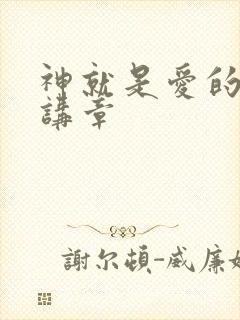 神就是愛的
講章
謝尔頓-威廉